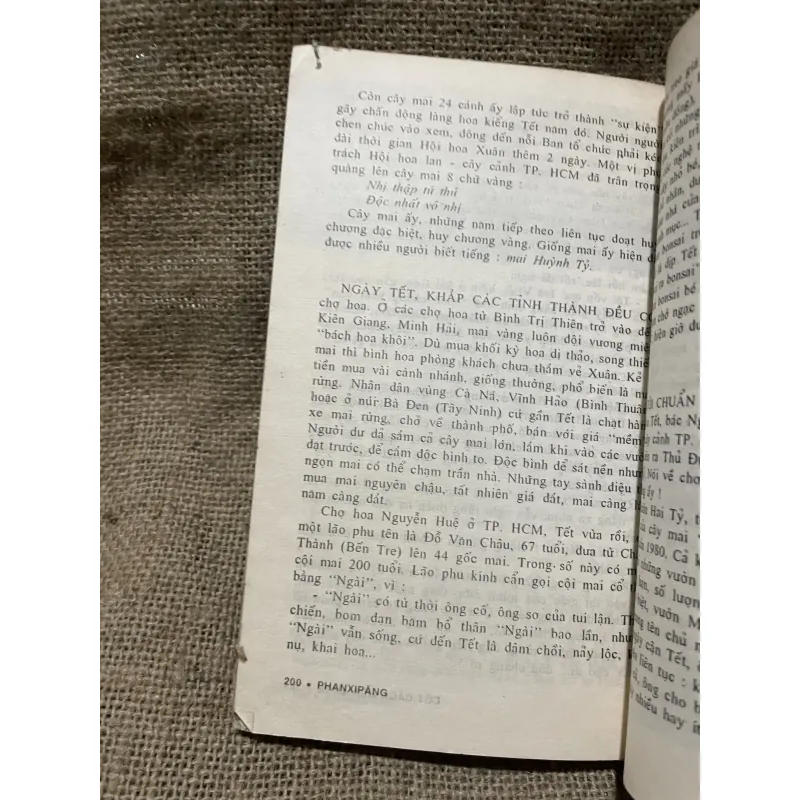 Còn cây mai 24 cánh ấy lập tức trở thành "sự kiện"
gây chấn động làng hoa kiểng Tết năm đó. Người người
chen chúc vào xem, đông đến nỗi Ban tổ chức phải kéo
dài thời gian Hội hoa Xuân thêm 2 ngày. Một vị phụ
trách Hội hoa lan - cây cảnh TP. HCM đã trân trọng
quàng lên cây mai 8 chữ vàng :
Nhị thập tứ thủ
Độc nhất vô nhị
Cây mai ấy, những nam tiếp theo liên tục đoạt huy
chương đặc biệt, huy chương vàng. Giống mai ấy hiện đ
được nhiều người biết tiếng : mai Huỳnh Tỷ.
NGÀY TẾT, KHẮP CÁC TỈNH THÀNH ĐỀU CÓ
chợ hoa. Ở các chợ hoa từ Bình Trị Thiên trở vào đế
Kiên Giang, Minh Hải, mai vàng luôn đội vương miệ
"bách hoa khôi". Dù mua khối kỳ hoa dị thảo, song thiế
mai thì bình hoa phòng khách chưa thắm vẻ Xuân. Kẻ í
tiền mua vài cành nhánh, giống thường, phổ biến là m
rừng. Nhân dân vùng Cà Ná, Vĩnh Hảo (Bình Thuậ
hoặc ở núi Bà Đen (Tây Ninh) cứ gần Tết là chặt hàn
xe mai rừng, chở về thành phố, bán với giá "mềm
Người dư dả sắm cả cây mai lớn, lắm khi vào các vườ
đặt trước, để cắm độc bình to. Độc bình để sát nền như
ngọn mai có thể chạm trần nhà. Những tay sành điệu t
mua mai nguyên chậu, tất nhiên giá đắt, mai càng l
năm càng đắt.
Chợ hoa Nguyễn Huệ ở TP. HCM, Tết vừa rồi,
một lão phu tên là Đỗ Văn Châu, 67 tuổi, đưa từ Ch
Thành (Bến Tre) lên 44 gốc mai. Trong số này có m
cội mai 200 tuổi. Lão phu kính cẩn gọi cội mai cổ t
bằng "Ngài", vì :
- "Ngài" có từ thời ông cố, ông sơ của tui lận. Th
chiến, bom đạn băm bổ thân "Ngài" bao lần, như
"Ngài" vẫn sống, cứ đến Tết là đâm chồi, nảy lộc,
nụ, khai hoa...
200 • PHANXIPĂNG
CHUẨN
Tết, bác Ng
cây cảnh TP.
ra Thủ Đứ
Nói về chơ
ấy !
Hai Tỷ, t
cây mai
1980. Cả k
những vườn
số lượn
vườn M
tên chủ n
cận Tết,
liên tục : k
ông cho b
nhiều hay ít